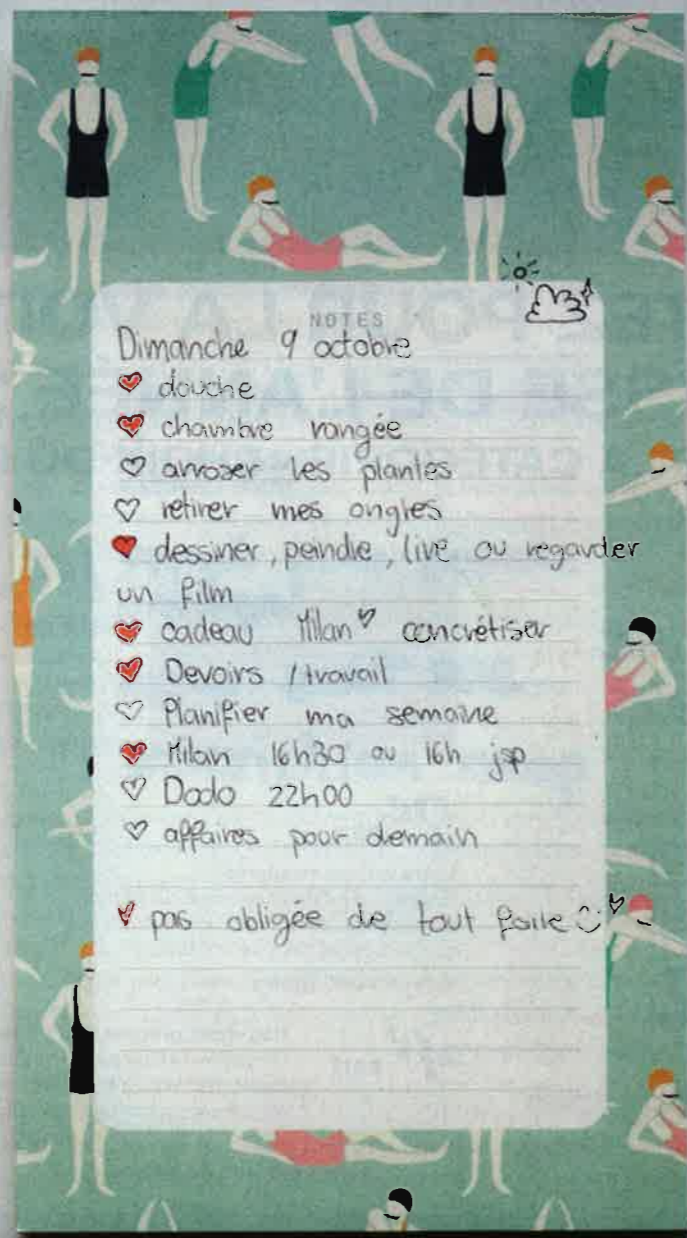 NOTES
Dimanche 9 octobre
douche
chambre rangée
arroser les plantes
retirer mes ongles
dessiner, peindre, lire ou regarder
un film
cadeau Milan concrétiser
Devoirs / travail
Planifier ma semaine
Milan 16h30 ou 16h jsp
Dodo 22h00
affaires pour demain
pas obligée de tout faire